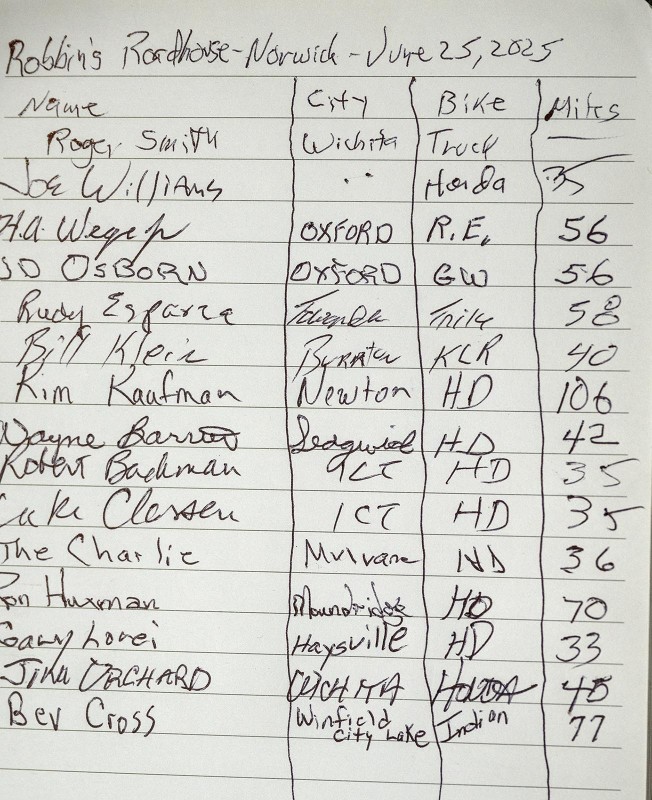 Robbin's Roadhouse - Norwick - June 25, 2025
Name City Bike Miles
Roger Smith Wichita Truck —
Joe Williams " Honda 35
H.A. OXFORD R.E. 56
JD OSBORN OXFORD GW 56
Rudy Esparza Towanda 58
Bill Klein KLR 40
Kim Kaufman Newton HD 106
Wayne Sedgwick HD 42
Robert Backman ICT HD 35
Classen ICT HD 35
The Charlie Mulvane 36
Ron Huxman Moundridge HD 70
Gary Haysville HD 33
ORCHARD WICHITA HONDA 45
Bev Cross Winfield City Lake Indian 77